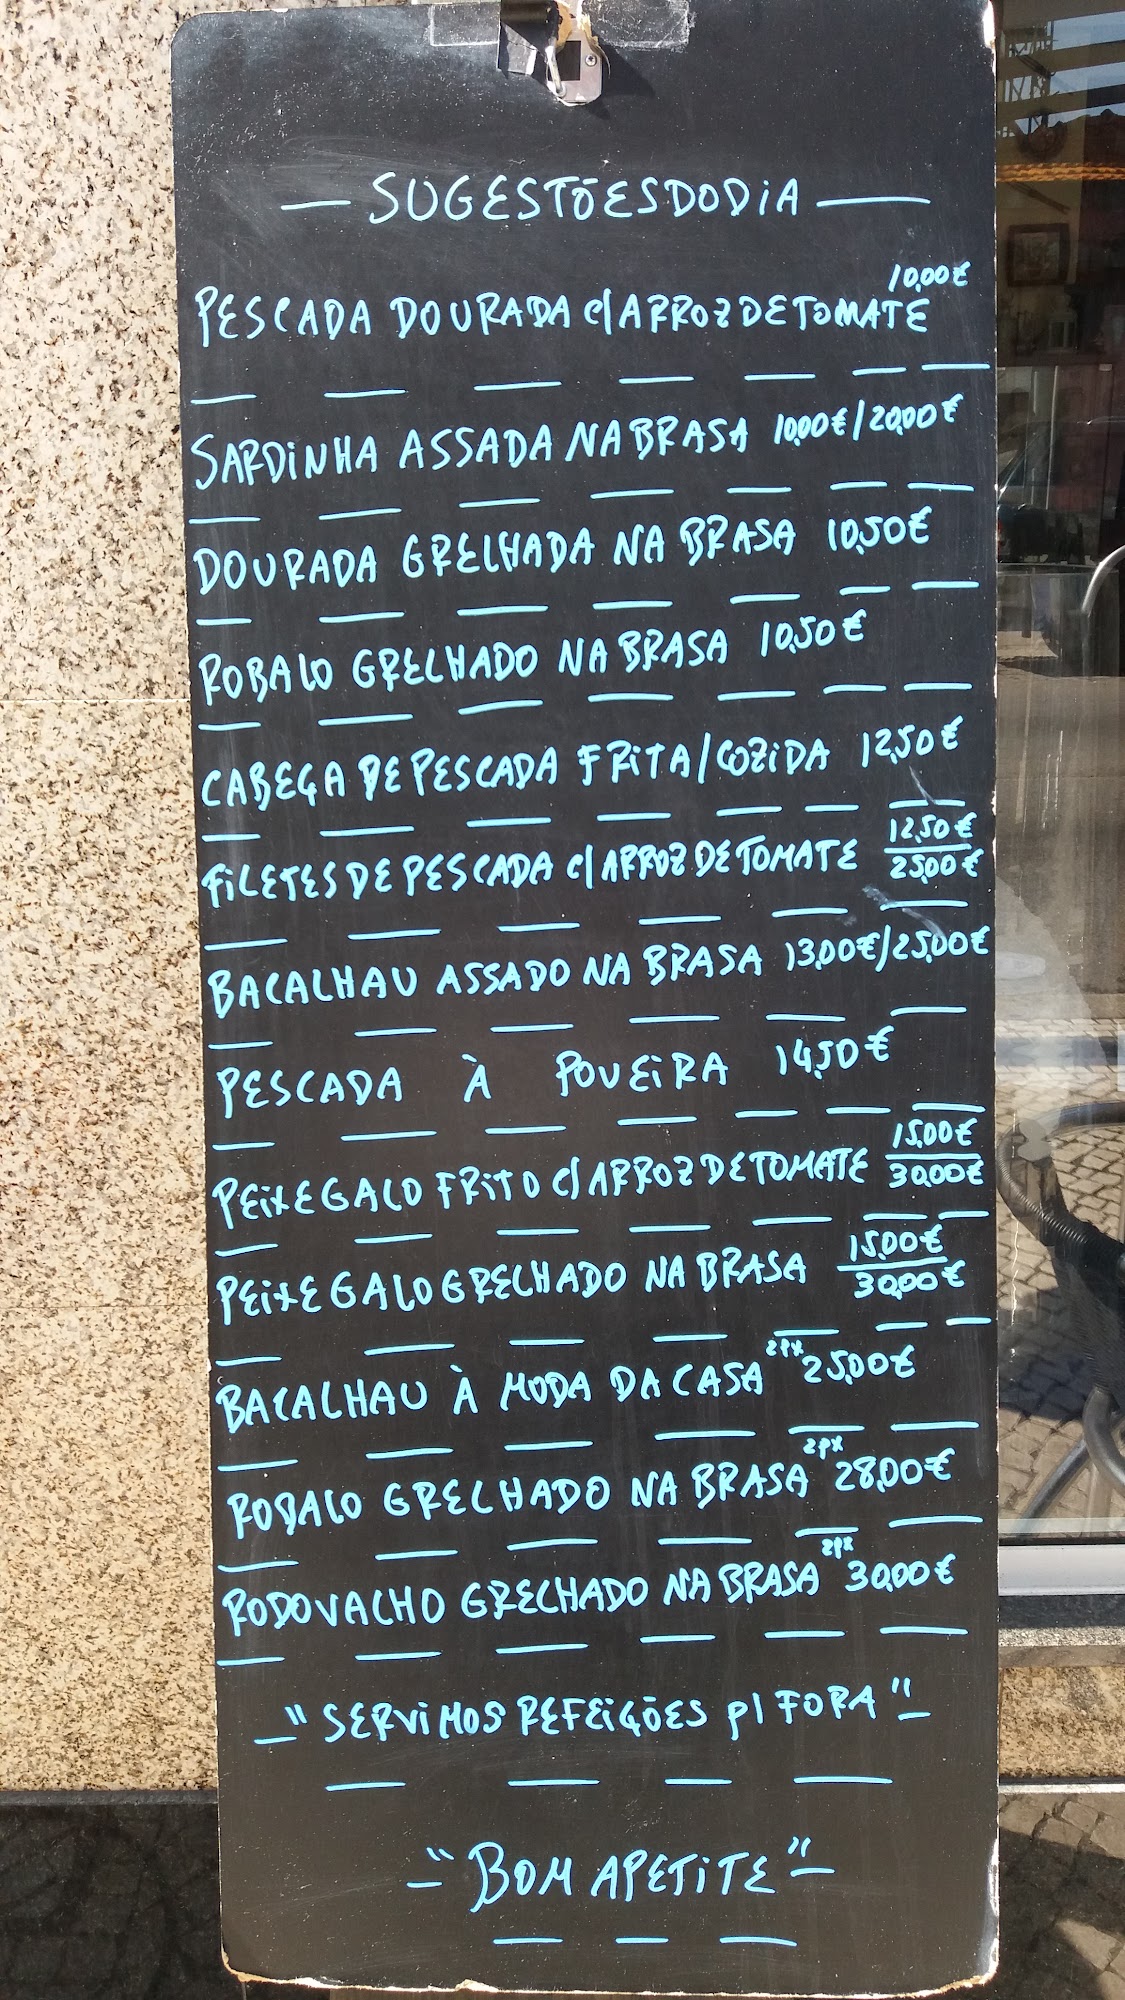 SUGESTÕES DO DIA
PESCADA DOURADA C/ ARROZ DE TOMATE 10,00€
SARDINHA ASSADA NA BRASA 10,00€/20,00€
DOURADA GRELHADA NA BRASA 10,50€
ROBALO GRELHADO NA BRASA 10,50€
CABEÇA DE PESCADA FRITA/COZIDA 12,50€
FILETES DE PESCADA C/ ARROZ DE TOMATE 12,50€ 25,00€
BACALHAU ASSADO NA BRASA 13,00€/25,00€
PESCADA À POVEIRA 14,50€
PEIXE GALO FRITO C/ ARROZ DE TOMATE 15,00€ 30,00€
PEIXE GALO GRELHADO NA BRASA 15,00€ 30,00€
BACALHAU À MODA DA CASA 2PX 25,00€
ROBALO GRELHADO NA BRASA 2PX 28,00€
RODOVALHO GRELHADO NA BRASA 2PX 30,00€
"SERVIMOS REFEIÇÕES P/ FORA"
"BOM APETITE"